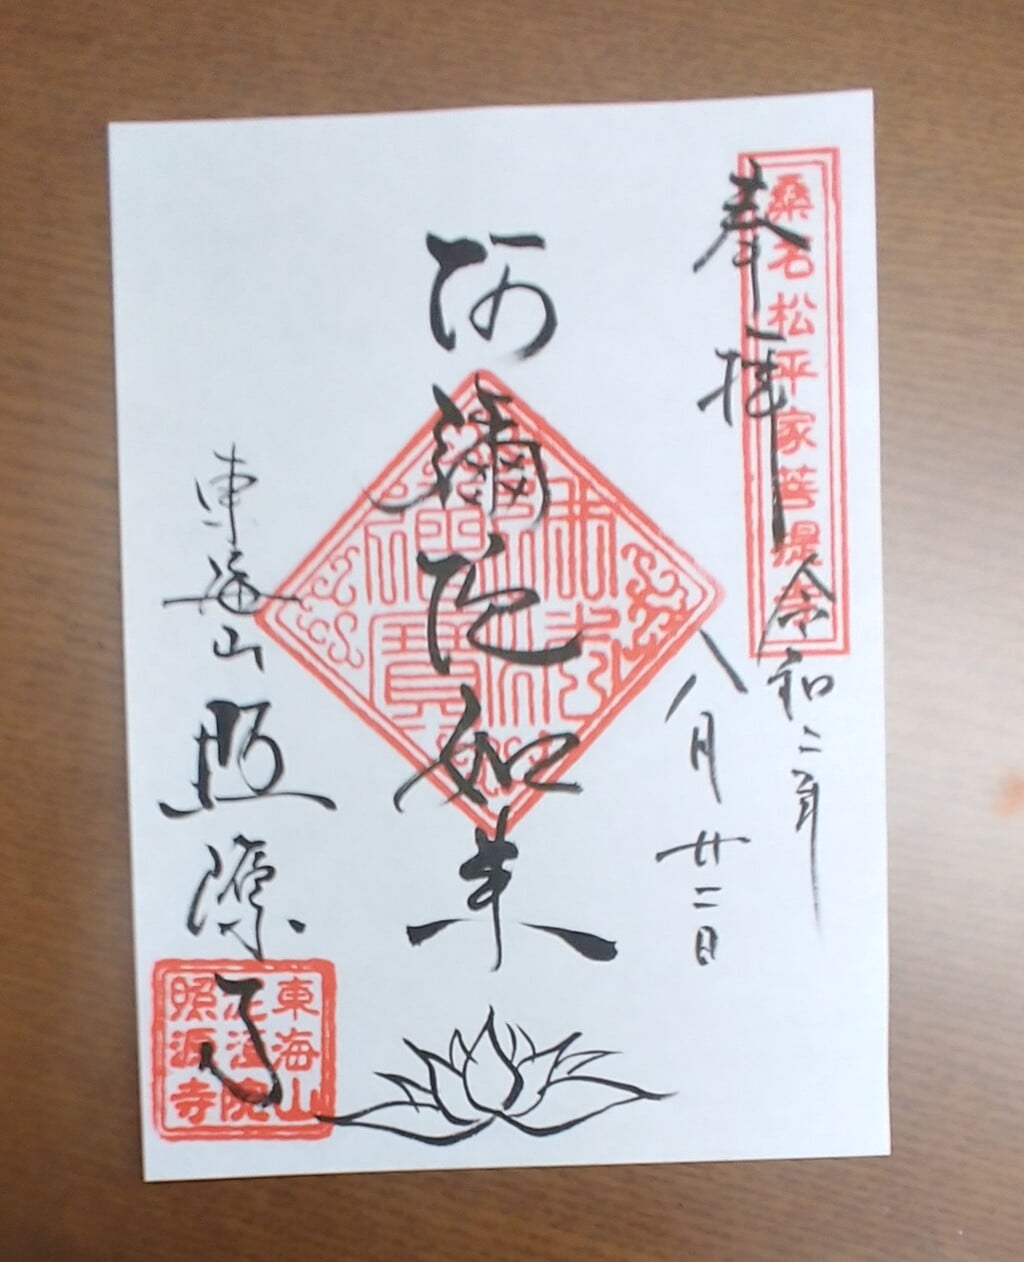 桑名松平家菩提寺
奉拝
令和二年
八月廿二日
阿彌陀如来
佛法僧寶
東海山
照源寺
東海山
照源寺